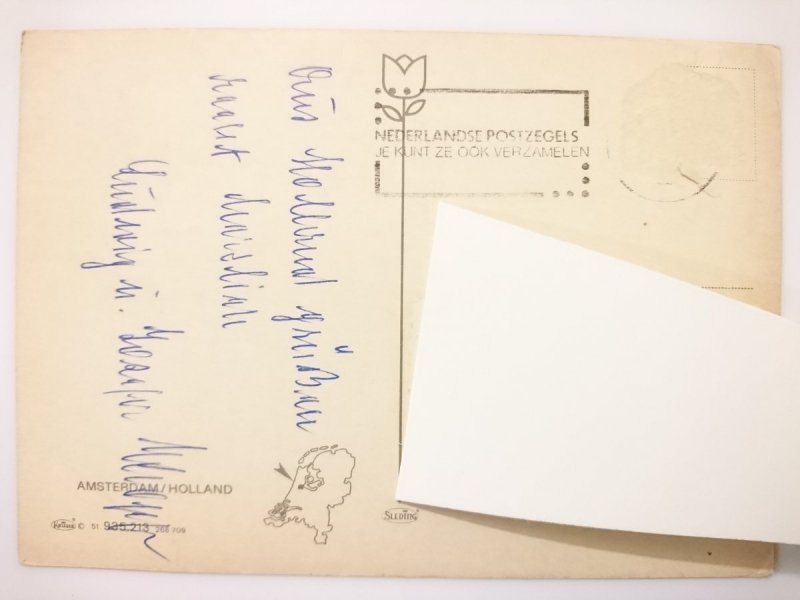 Aus Holland grüßen
recht herzlich
Ludwig u.
NEDERLANDSE POSTZEGELS
JE KUNT ZE OOK VERZAMELEN
AMSTERDAM/HOLLAND
© 51.935.213 266 709
SLEDING